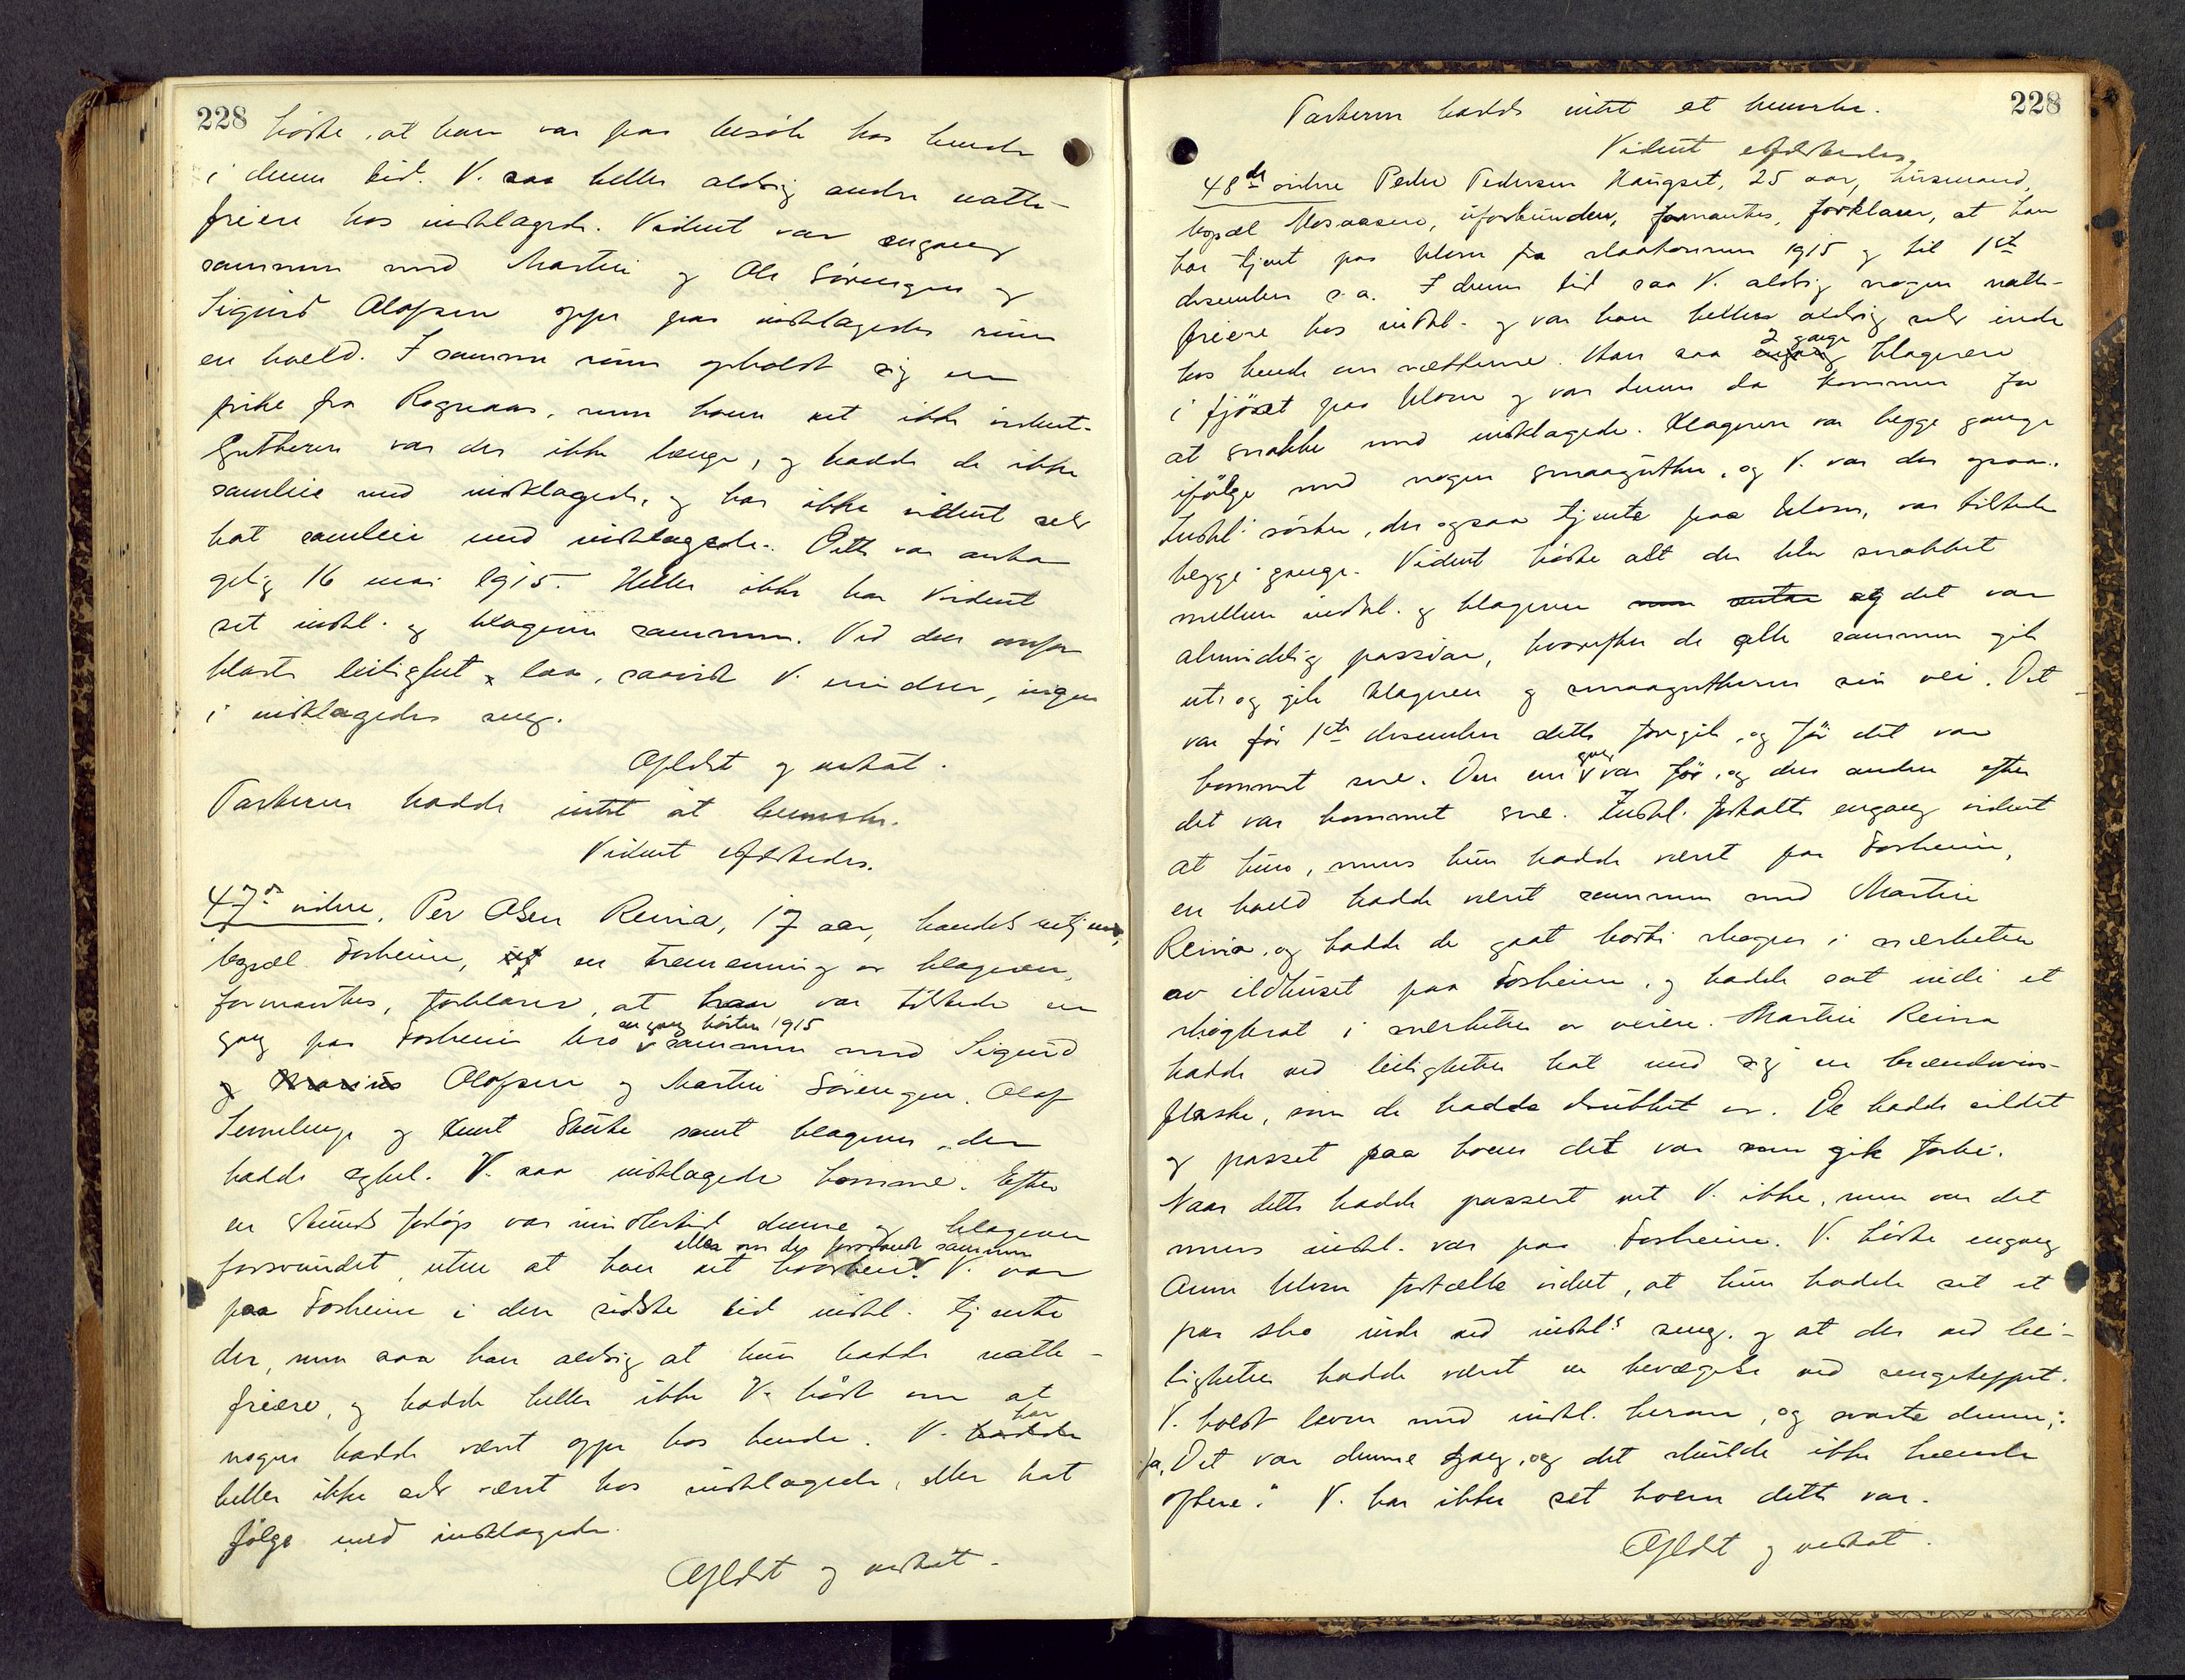 228
hørte, at han var paa besøk hos hende
i denne tid. V. saa heller aldrig andre natte-
friere hos indklagede. Vidnet var engang
sammen med Martin og Ole Sørengen og
Sigurd Olafsen oppe paa indklagedes rum
en kveld. I samme rum opholdt sig en
pike fra Rognaas, men hvem vet ikke vidnet.
Gutterne var der ikke længe, og hadde de ikke
samleie med indklagede, og har ikke vidnet selv
hat samleie med indklagede. Dette var anta
gelig 16 mai 1915. Heller ikke har vidnet
set indkl. og klageren sammen. Ved den omfor
klarte leilighet laa, saavidt V. minder, ingen
i indklagedes seng.
Oplest og vedtat.
Parterne hadde intet at bemerke.
Vidnet aftrædes.
47de vidne, Per Olsen Reinia, 17 aar, handelsbetjent,
bopæl Forheim, er tremenning av klageren,
formantes, forklarer, at han var tilstede en
gang paa Forheim bro engang høsten 1915 sammen med Sigurd
og Marius Olafsen og Martin Sørengen, Olaf
og Knut samt klageren, der
hadde cykel. V. saa indklagede komme. Efter
en stunds forløp var imidlertid denne og klageren
forsvundet, uten at han vet hvorhen eller om de forsvandt sammen. V. var
paa Forheim i den sidste tid indkl. tjente
der, men saa han aldrig at hun hadde natte-
friere, og hadde heller ikke V. hørt om at
nogen hadde været oppe hos hende. V. hadde har
heller ikke selv været hos indklagede, eller hat
følge med indklagede.
Oplest og vedtat.
228
Parterne hadde intet at bemerke.
Vidnet aftrædes.
48de vidne Peder Pedersen Haugset, 25 aar, husmand,
bopæl Mosaasen, uforbunden, formantes, forklarer, at han
har tjent paa Moen fra slaatonnen 1915 og til 1ste
desember s.a. I denne tid saa V. aldrig nogen natte-
friere hos indkl. og var han heller aldrig selv inde
hos hende om nætterne. Han saa engang 2 gange klageren
i fjøset paa Moen og var denne da kommen for
at snakke med indklagede. Klageren var begge gange
ifølge med nogen smaagutter, og V. var der ogsaa.
Indkl's søster, der ogsaa tjente paa Moen, var tilstede
begge gange. Vidnet hørte alt der blev snakket
mellem indkl. og klageren og det var
almindelig passiar, hvorefter de alle sammen gik
ut, og gik klageren og smaagutterne sin vei. Det
var før 1ste desember dette foregik, og før det var
kommet sne. Den ene gang var før, og den anden efter
det var kommet sne. Indkl. fortalte engang vidnet
at hun, mens hun hadde været paa Forheim,
en kveld hadde været sammen med Martin
Reinia, og hadde de gaat borti skogen i nærheten
av ildhuset paa Forheim, og hadde sat inde i et
skogkrat i nærheten av veien. Martin Reinia
hadde ved leiligheten hat med sig en brændevins-
flaske, som de hadde drukket av. De hadde sittet
og passet paa hvem det var som gik forbi.
Naar dette hadde passert vet V. ikke, men var det
mens indkl. var paa Forheim. V. hørte engang
Anne Moen fortælle vidnet, at hun hadde set et
par sko inde ved indkl's seng, og at der ved lei-
ligheten hadde været en bevægelse ved sengeteppet.
V. holdt leven med indkl. herom, og svarte denne:
"Ja, Det var denne gang, og det skulde ikke hænde
oftere." V. har ikke set hvem dette var.
Oplest og vedtat.